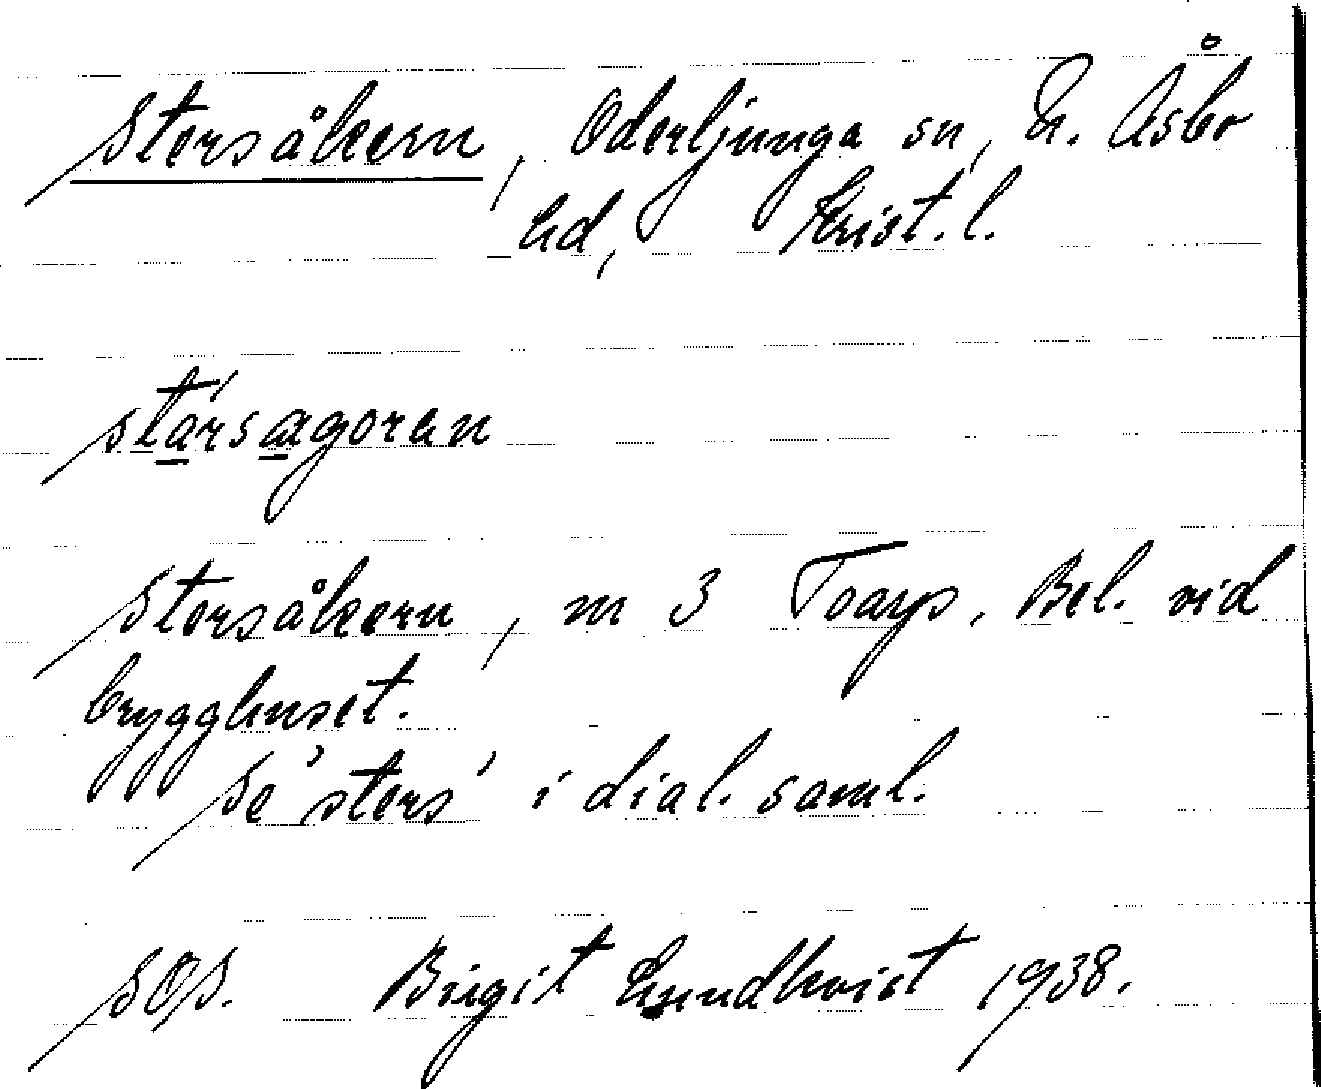 Storsåkern, Oderljunga sn, N. Åsbo
hd, Krist. l.
stársagoran
Storsåkern, m 3 Toarp. Bel. vid
brygghuset.
Se 'stors' i dial. saml.
SOS. Birgit Lundkvist 1938.